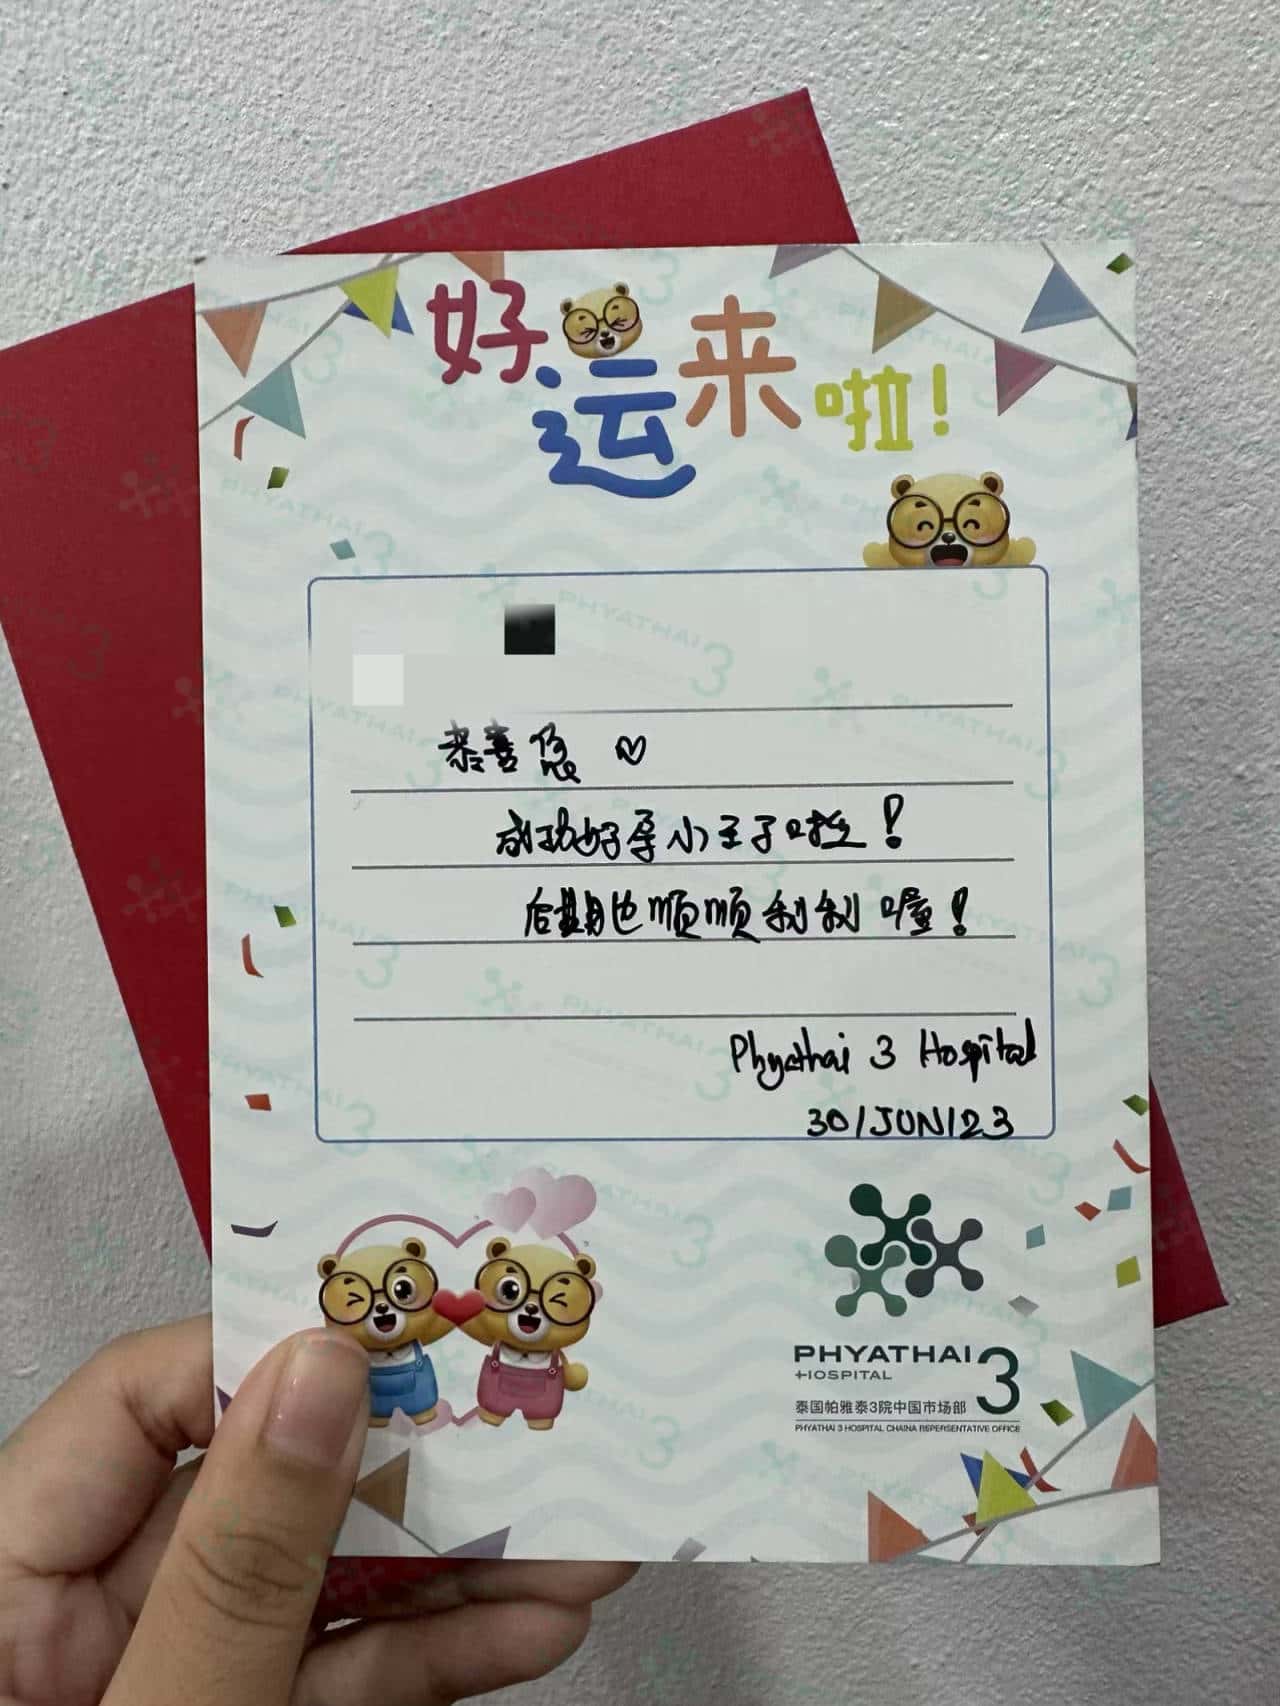 好运来啦!
恭喜您♡
成功好孕小王子啦!
后期也顺顺利利喔!
Phyathai 3 Hospital
30/JUN/23
PHYATHAI 3
HOSPITAL
泰国帕雅泰3院中国市场部
PHYATHAI 3 HOSPITAL CHAINA REPERSENTATIVE OFFICE